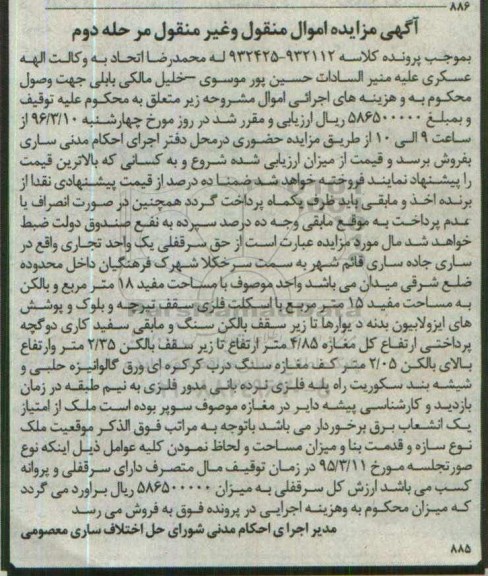 ۸۸۶
آگهی مزایده اموال منقول وغیر منقول مرحله دوم
بموجب پرونده کلاسه ۹۳۲۱۱۲-۹۳۲۴۲۵ له محمدرضا اتحاد به وکالت الهه
عسکری علیه منیر السادات حسین پور موسوی –خلیل مالکی بابلی جهت وصول
محکوم به و هزینه های اجرائی اموال مشروحه زیر متعلق به محکوم علیه توقیف
و بمبلغ ۵۸۶۵۰۰۰۰۰ ریال ارزیابی و مقرر شد در روز مورخ چهارشنبه ۹۶/۳/۱۰ از
ساعت ۹ الی ۱۰ از طریق مزایده حضوری درمحل دفتر اجرای احکام مدنی ساری
بفروش برسد و قیمت از میزان ارزیابی شده شروع و به کسانی که بالاترین قیمت
را پیشنهاد نمایند فروخته خواهد شد ضمنا ده درصد از قیمت پیشنهادی نقدا از
برنده اخذ و مابقی باید ظرف یکماه پرداخت گردد همچنین در صورت انصراف یا
عدم پرداخت به موقع مابقی وجه ده درصد سپرده به نفع صندوق دولت ضبط
خواهد شد مال مورد مزایده عبارت است از حق سرقفلی یک واحد تجاری واقع در
ساری جاده ساری قائم شهر به سمت سرخکلا شهرک فرهنگیان داخل محدوده
ضلع شرقی میدان می باشد واحد موصوف با مساحت مفید ۱۸ متر مربع و بالکن
به مساحت مفید ۱۵ متر مربع با اسکلت فلزی سقف تیرچه و بلوک و پوشش
های ایزولاسیون بدنه دیوارها تا زیر سقف بالکن سنگ و مابقی سفید کاری دوگچه
پرداختی ارتفاع کل مغازه ۴/۸۵ متر ارتفاع تا زیر سقف بالکن ۲/۳۵ متر وارتفاع
بالای بالکن ۲/۰۵ متر کف مغازه سنگ درب کرکره ای ورق گالوانیزه حلبی و
شیشه بند سکوریت راه پله فلزی نرده بانی مدور فلزی به نیم طبقه در زمان
بازدید و کارشناسی پیشه دایر در مغازه موصوف سوپر بوده است ملک از امتیاز
یک انشعاب برق برخوردار می باشد باتوجه به مراتب فوق الذکر موقعیت ملک
نوع سازه و قدمت بنا و میزان مساحت و لحاظ نمودن کلیه عوامل ذیل اینکه نوع
صورتجلسه مورخ ۹۵/۳/۱۱ در زمان توقیف مال متصرف دارای سرقفلی و پروانه
کسب می باشد ارزش کل سرقفلی به میزان ۵۸۶۵۰۰۰۰۰ ریال براورد می گردد
که میزان محکوم به وهزینه اجرایی در پرونده فوق به فروش می رسد
مدیر اجرای احکام مدنی شورای حل اختلاف ساری معصومی
۸۸۵